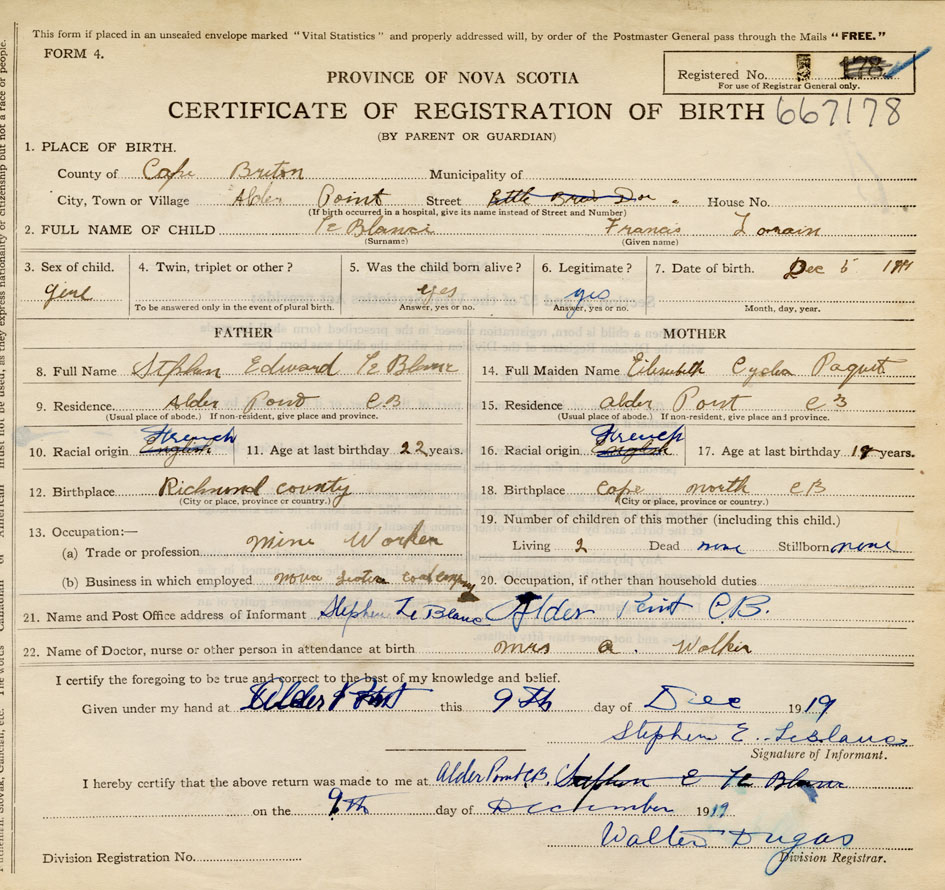 This form if placed in an unsealed envelope marked "Vital Statistics" and properly addressed will, by order of the Postmaster General pass through the Mails "FREE."
FORM 4.
Registered No. 178
For use of Registrar General only.
PROVINCE OF NOVA SCOTIA
CERTIFICATE OF REGISTRATION OF BIRTH 667178
(BY PARENT OR GUARDIAN)
1. PLACE OF BIRTH.
County of Cape Briton Municipality of
City, Town or Village Alder Point Street Little Bras Dor House No.
(If birth occurred in a hospital, give its name instead of Street and Number)
2. FULL NAME OF CHILD Le Blanc Francis Lorain
(Surname) (Given name)
3. Sex of child. 4. Twin, triplet or other? 5. Was the child born alive? 6. Legitimate? 7. Date of birth. Dec 5 1919
girl yes yes
To be answered only in the event of plural birth. Answer, yes or no. Answer, yes or no. Month, day, year.
FATHER MOTHER
8. Full Name Stephen Edward Le Blanc 14. Full Maiden Name Paquet
9. Residence. Alder Point C B 15. Residence Alder Point C B
(Usual place of abode.) If non-resident, give place and province. (Usual place of abode.) If non-resident, give place and province.
French French
10. Racial origin English 11. Age at last birthday 22 years. 16. Racial origin English 17. Age at last birthday years.
12. Birthplace Richmond county 18. Birthplace Cape north C B
(City or place, province or country.) (City or place, province or country.)
13. Occupation:— 19. Number of children of this mother (including this child.)
(a) Trade or profession mine Worker Living 2 Dead none Stillborn none
(b) Business in which employed nova scotia coal company 20. Occupation, if other than household duties
21. Name and Post Office address of Informant Stephen Le Blanc Alder Point C.B.
22. Name of Doctor, nurse or other person in attendance at birth mrs a. Walker
I certify the foregoing to be true and correct to the best of my knowledge and belief.
Given under my hand at Alder Point this 9th day of Dec 1919
Stephen E. LeBlanc
Signature of Informant.
I hereby certify that the above return was made to me at Alder Point C.B. Stephen E Le Blanc
on the 9th day of December 1919
Walter Dugas
Division Registrar.
Division Registration No.